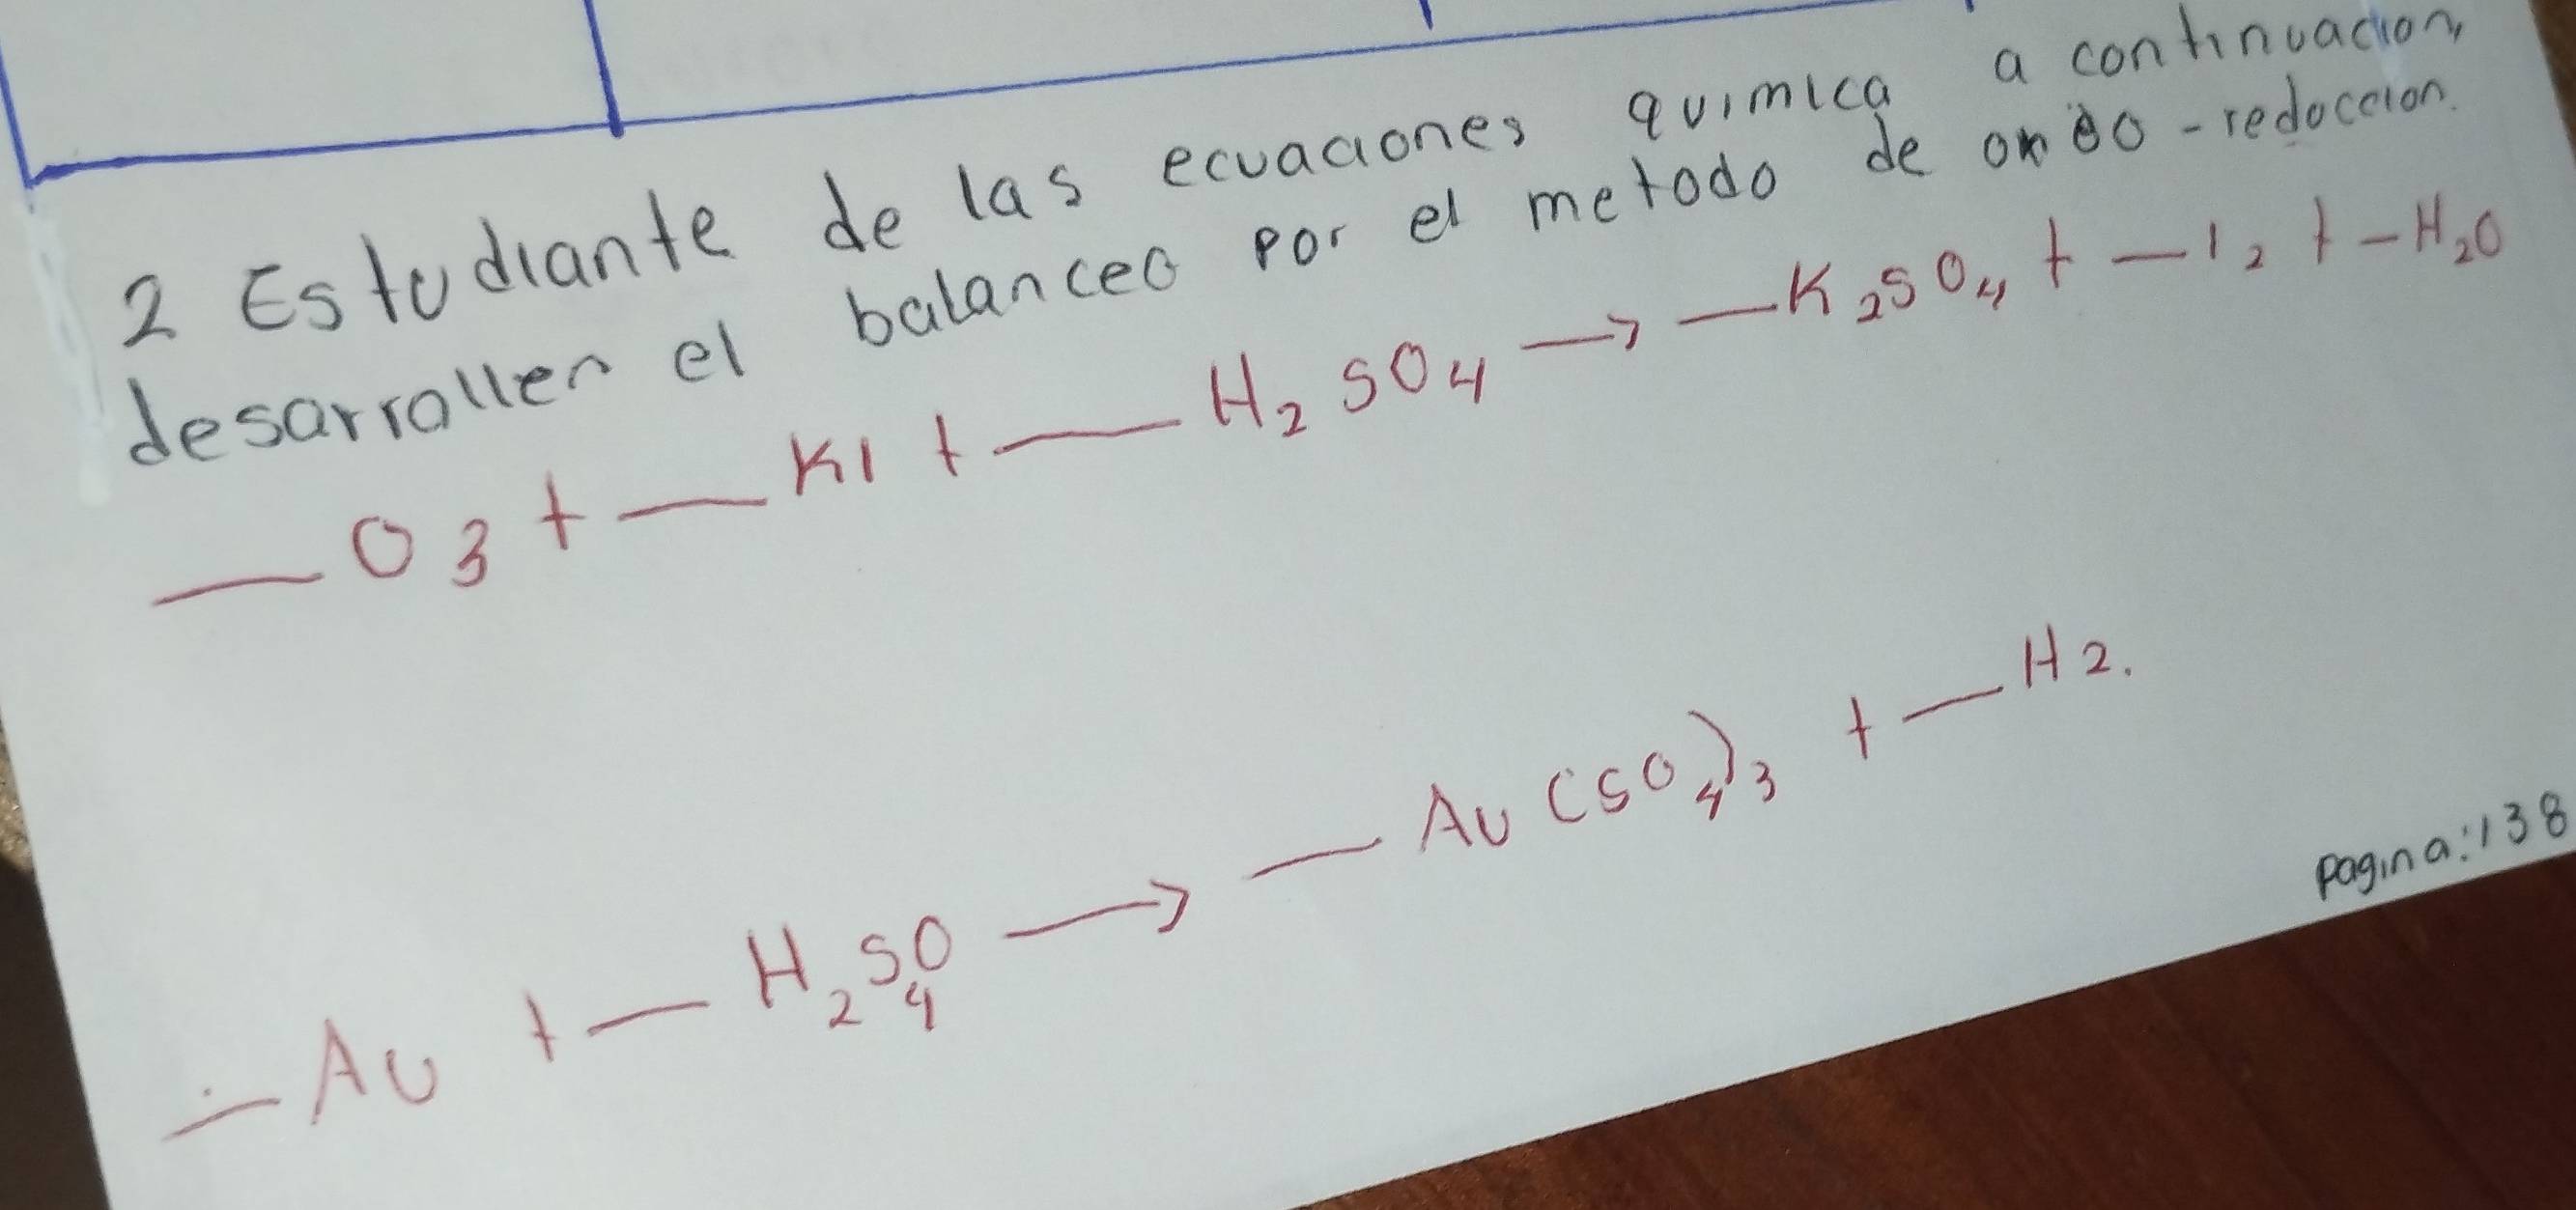 2 Estudiante de las ecuaciones quimica a continuacion,
desarrollen el balanceo por el metodo de oxido-reduccion.
—O3 + —KI + —H2SO4 → —K2SO4 + —I2 + —H2O
—Au + —H2SO4 → —Au(SO4)3 + —H2.
pagina:138